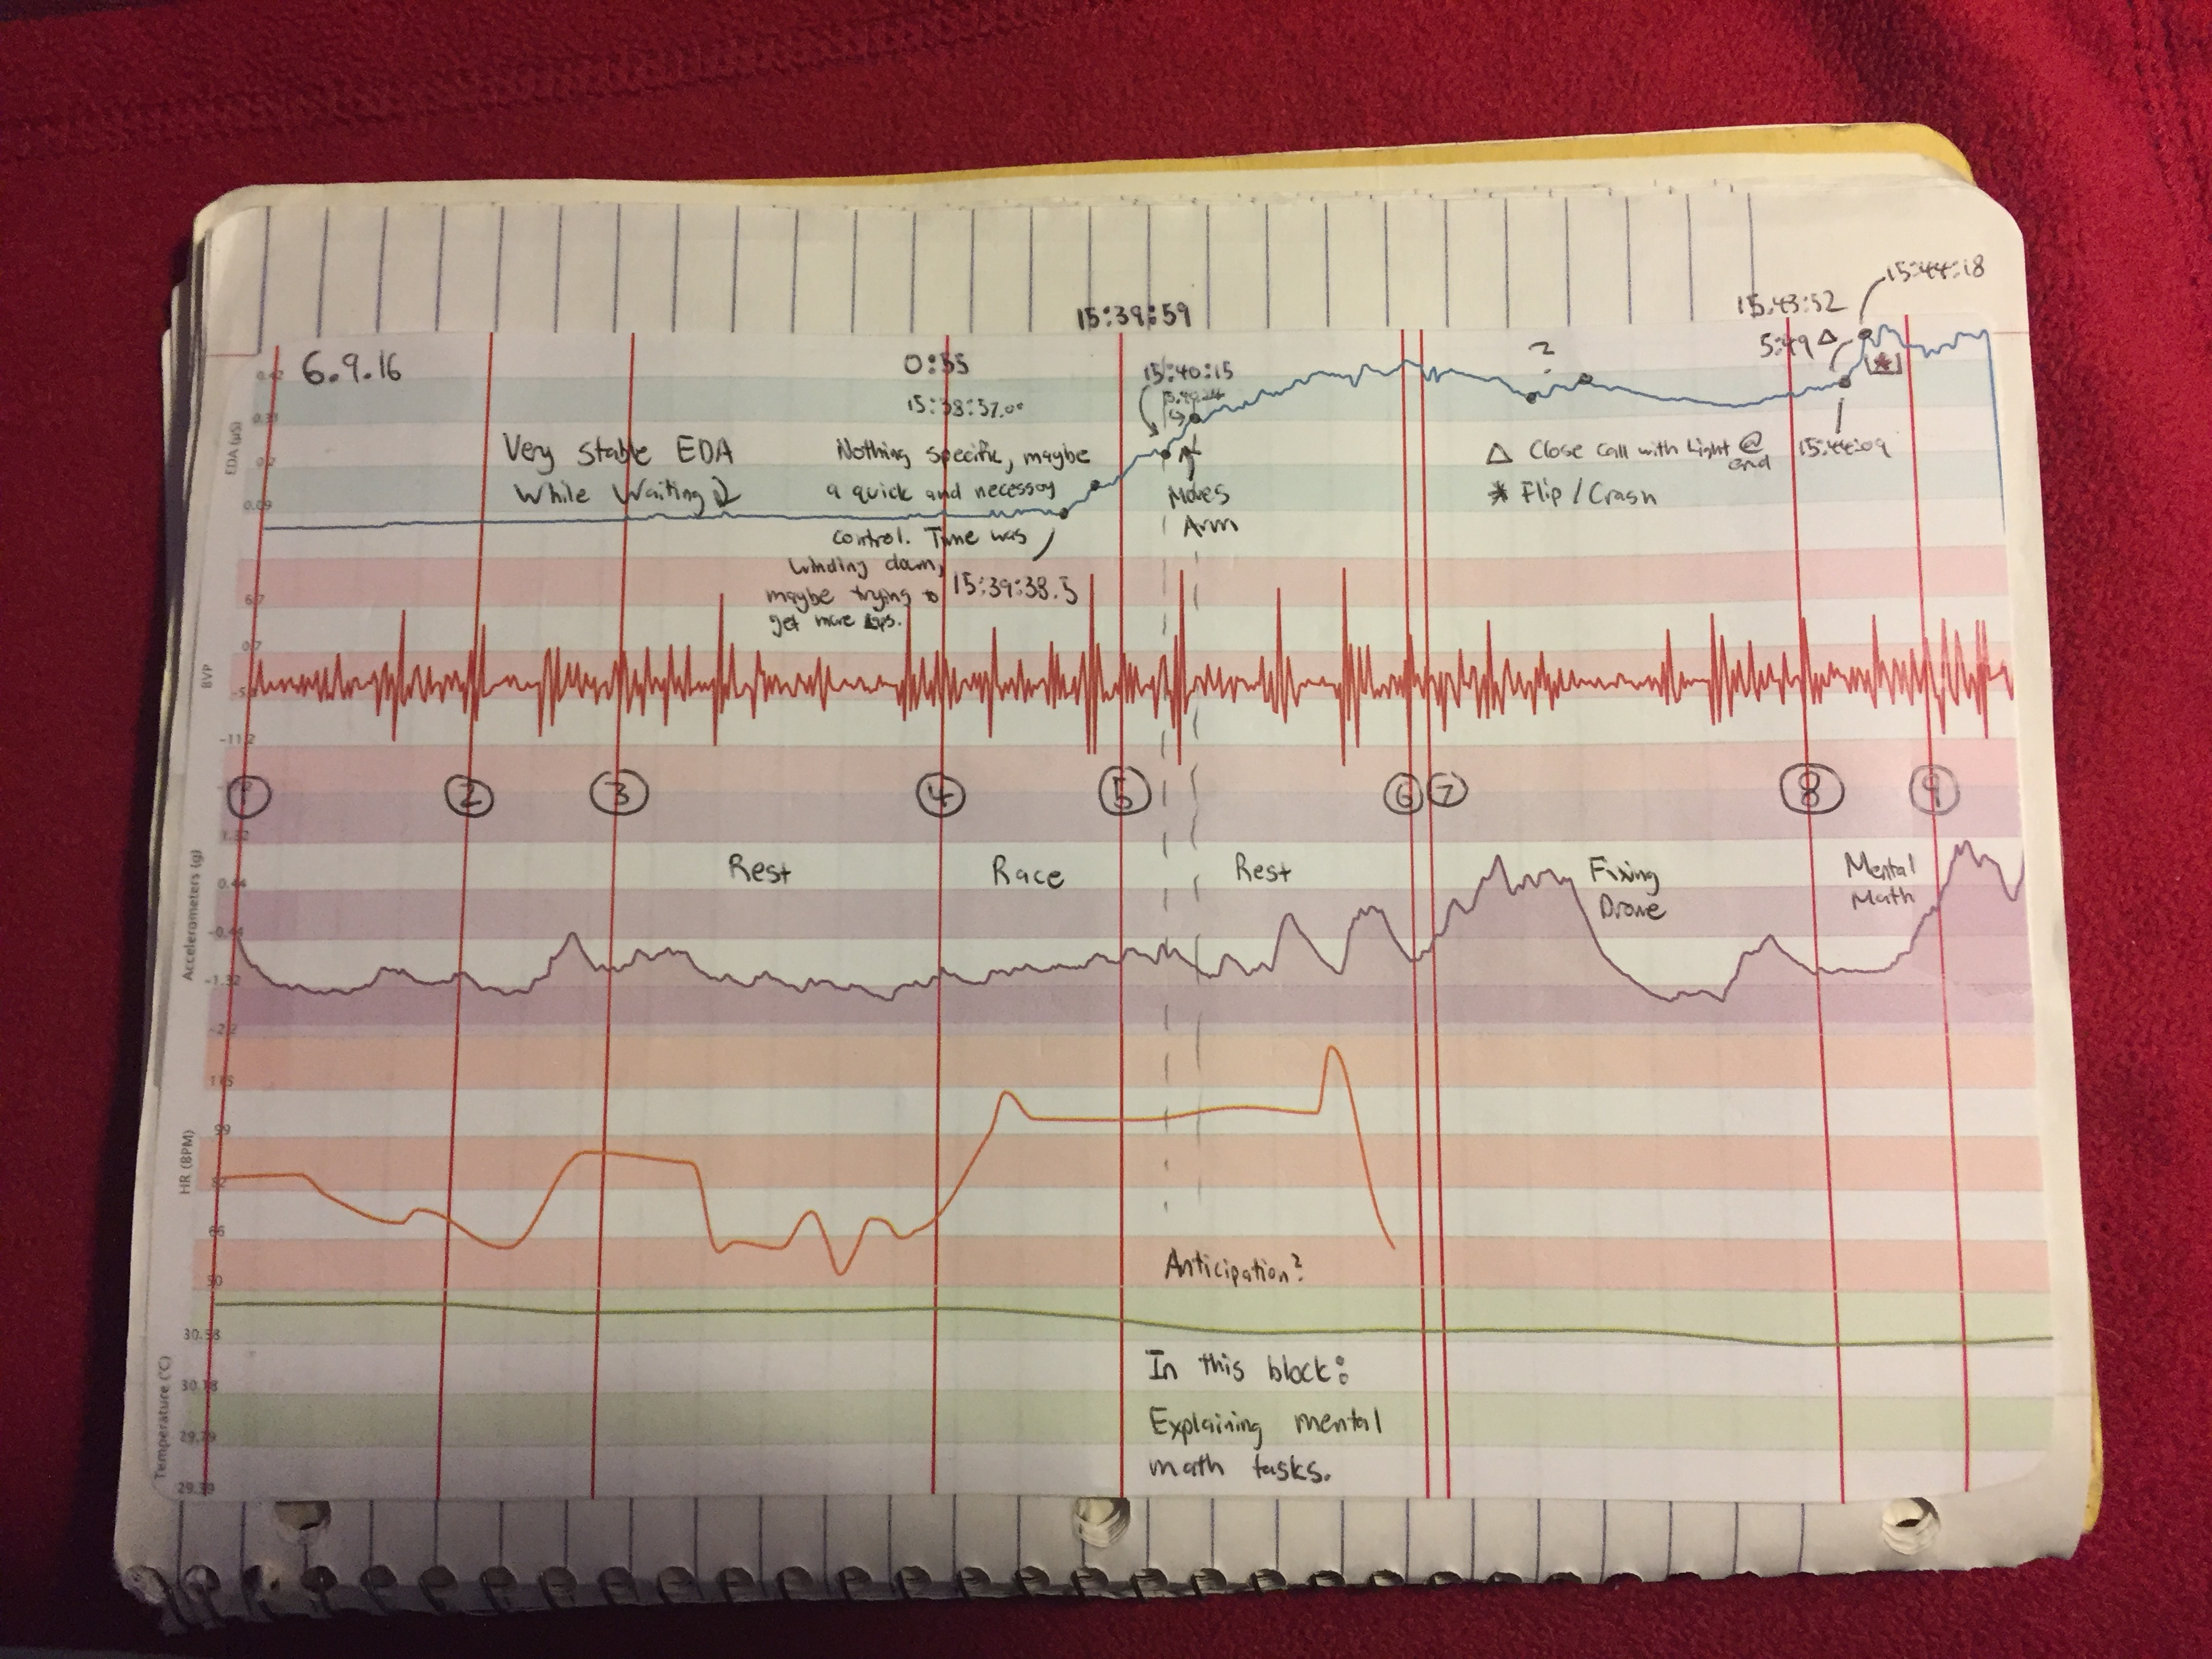 15:44:18
15:43:52
15:39:59
5:49 △
[*]
6.9.16
0:55
15:40:15
?
15:38:57.00
Very stable EDA
While Waiting
Nothing specific, maybe
a quick and necessary
control. Time was
winding down,
maybe trying to
get more laps.
15:39:38.5
Moves
Arm
△ Close call with Light @
end
* Flip / Crash
15:44:09
EDA (µS)
0.42
0.31
0.2
0.09
BVP
6.7
0.7
-11.2
1 2 3 4 5 6 7 8 9
Accelerometers (g)
1.32
0.44
-0.44
-1.32
-2.2
Rest
Race
Rest
Fixing
Drone
Mental
Math
HR (BPM)
115
99
82
66
50
Anticipation?
Temperature (°C)
30.58
30.18
29.79
29.39
In this block:
Explaining mental
math tasks.